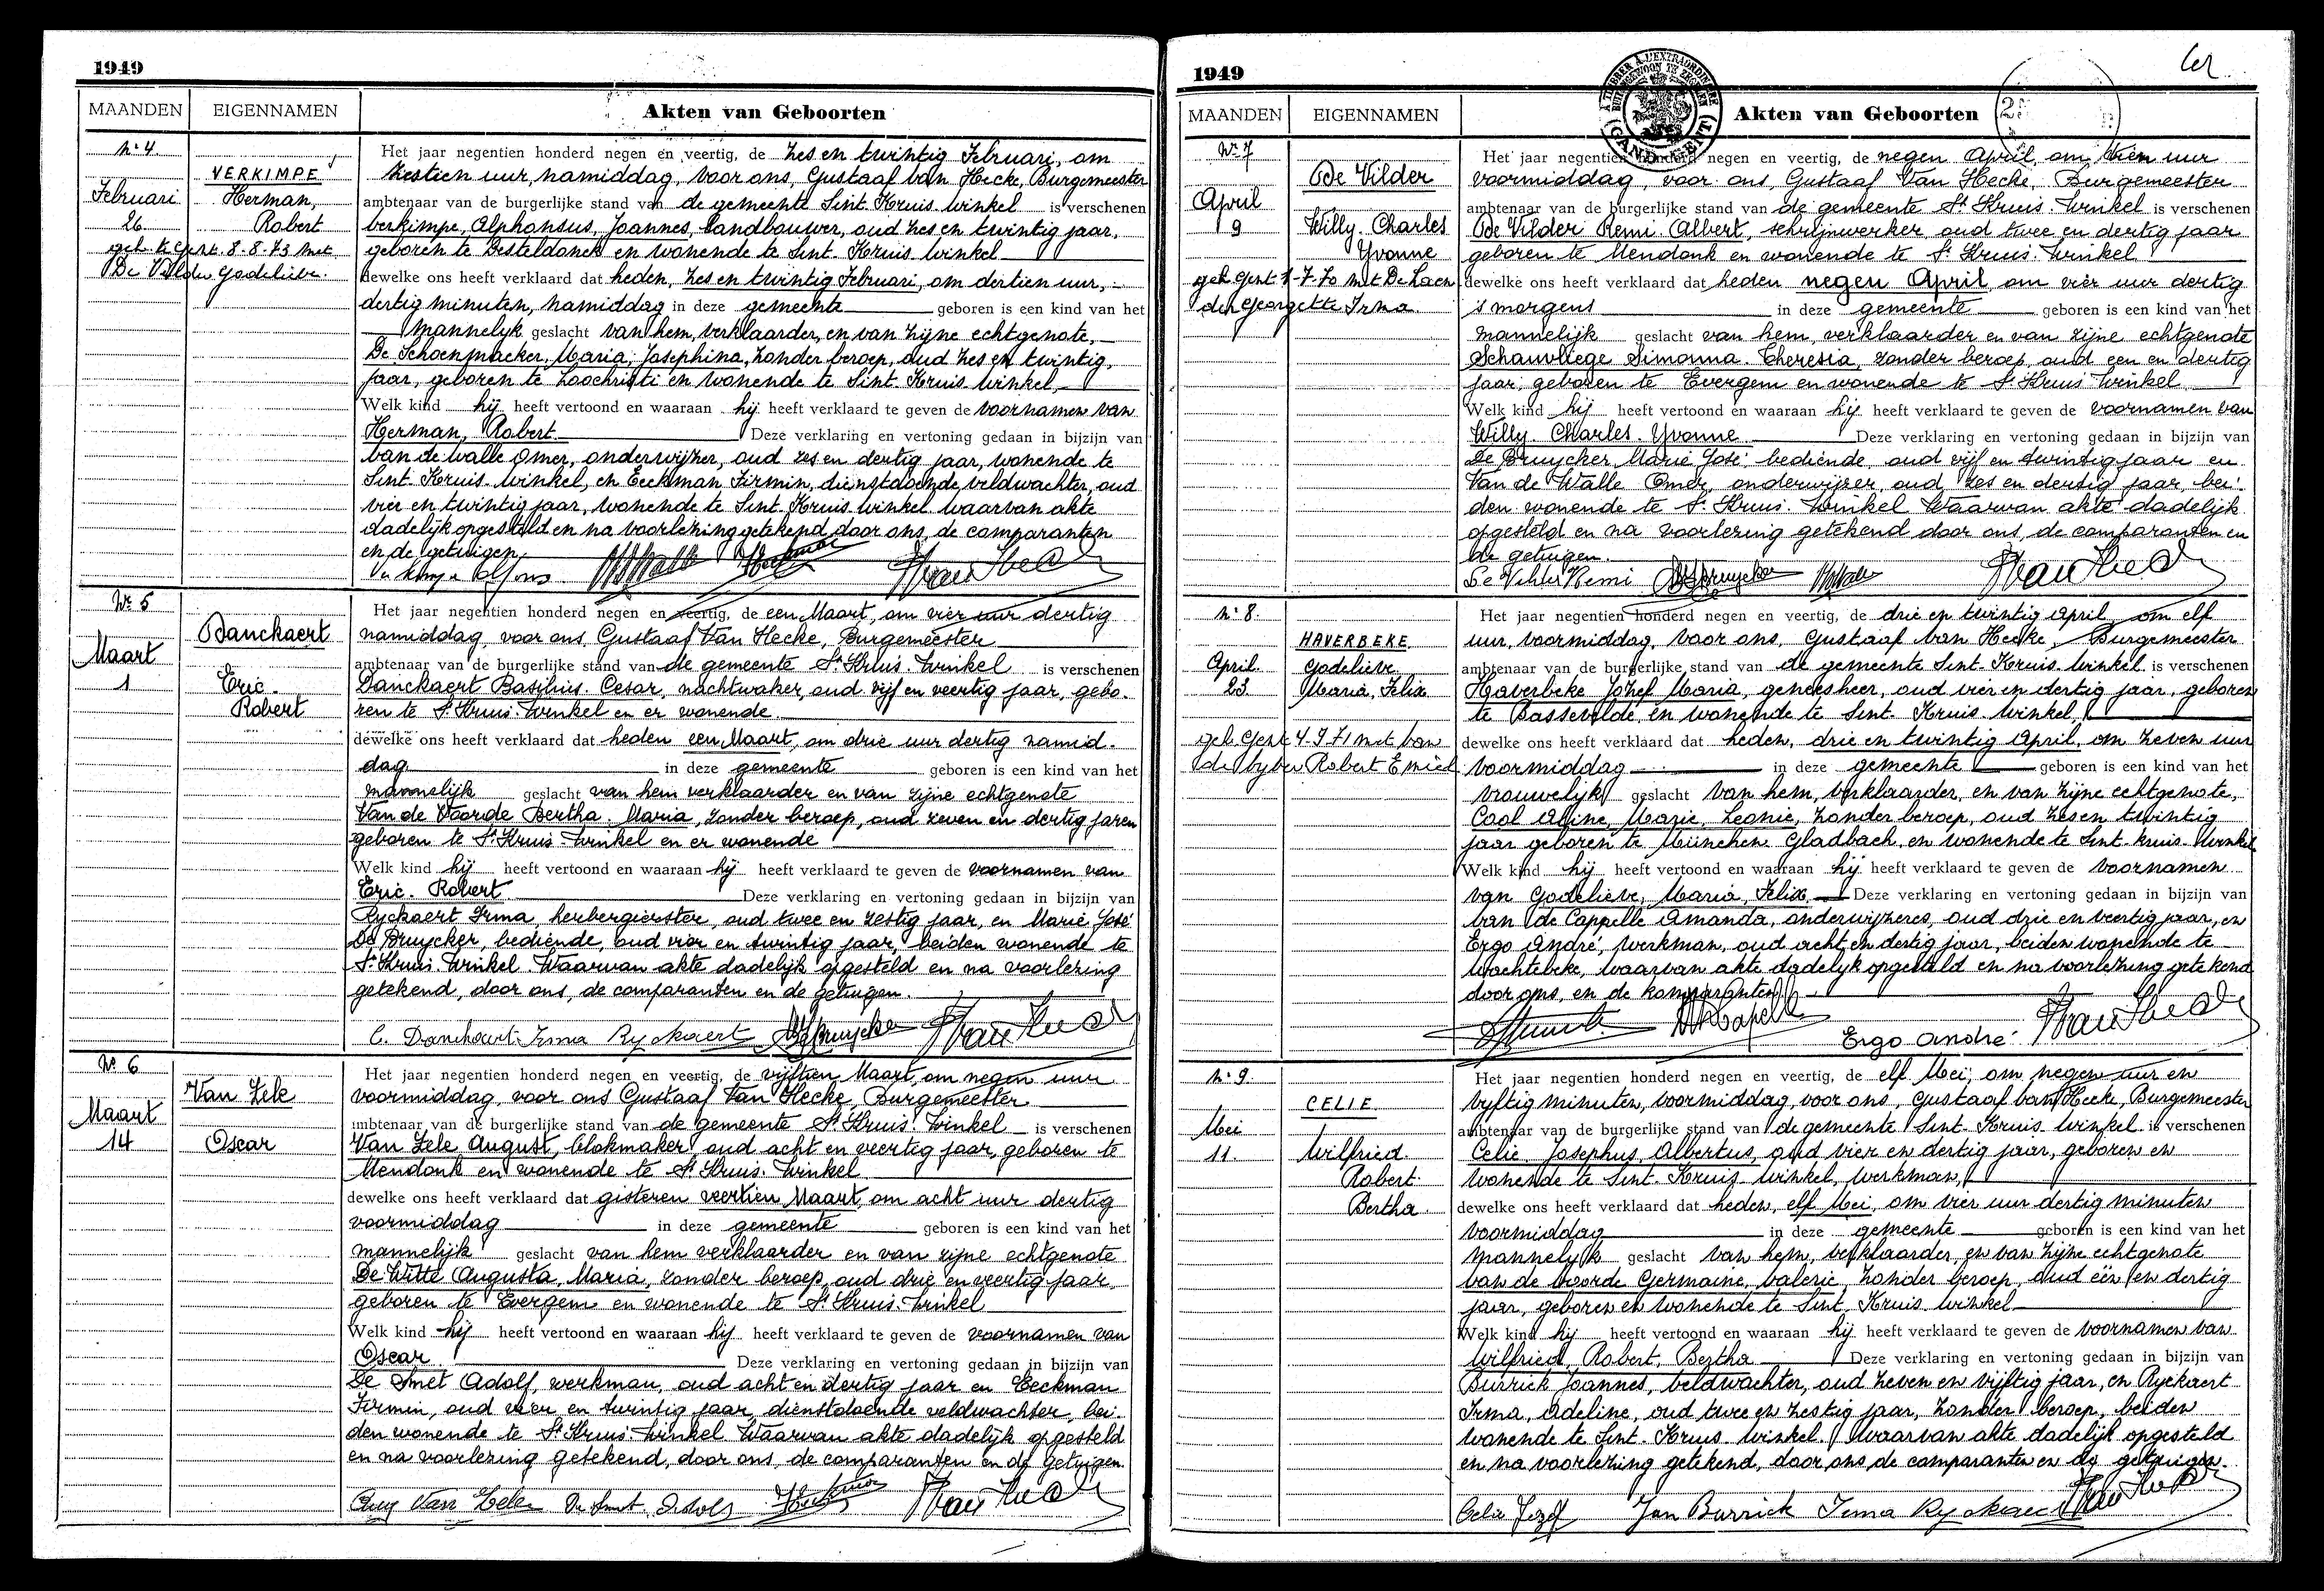 1949
MAANDEN EIGENNAMEN Akten van Geboorten
Nr 4.
VERKIMPE
Februari Herman,
26. Robert
geh. te Gent. 8-8-73 met
De Vilder Godelieve.
Het jaar negentien honderd negen en veertig, de zes en twintig Februari, om
zestien uur, namiddag, voor ons, Gustaaf Van Hecke, Burgemeester
ambtenaar van de burgerlijke stand van de gemeente Sint Kruis Winkel is verschenen
Verkimpe, Alphonsus, Joannes, landbouwer, oud zes en twintig jaar,
geboren te Desteldonck en wonende te Sint Kruis Winkel
dewelke ons heeft verklaard dat heden, zes en twintig Februari, om dertien uur,
dertig minuten, namiddag in deze gemeente geboren is een kind van het
mannelyk geslacht van hem, verklaarder, en van zijne echtgenote,
De Schoenmacker, Maria, Josephina, zonder beroep, oud zes en twintig
jaar, geboren te Loochristi en wonende te Sint Kruis Winkel,
Welk kind hij heeft vertoond en waaraan hij heeft verklaard te geven de voornamen van
Herman, Robert Deze verklaring en vertoning gedaan in bijzijn van
Van de Walle Omer, onderwijzer, oud zes en dertig jaar, wonende te
Sint Kruis Winkel, en Eeckman Firmin, dienstdoende veldwachter, oud
vier en twintig jaar, wonende te Sint Kruis Winkel waarvan akte
dadelijk opgesteld en na voorlezing getekend door ons, de comparanten
en de getuigen
Verkimpe Alfons
Nr 5
Danckaert
Maart
1 Eric.
Robert
Het jaar negentien honderd negen en veertig, de een Maart, om vier uur dertig
namiddag, voor ons, Gustaaf Van Hecke, Burgemeester
ambtenaar van de burgerlijke stand van de gemeente St Kruis-Winkel is verschenen
Danckaert Basilius. Cesar, nachtwaker, oud vijf en veertig jaar, gebo-
ren te St Kruis-Winkel en er wonende
dewelke ons heeft verklaard dat heden een Maart, om drie uur dertig namid-
dag in deze gemeente geboren is een kind van het
mannelijk geslacht van hem verklaarder en van zijne echtgenote
Van de Voorde Bertha. Maria, zonder beroep, oud zeven en dertig jaren
geboren te St Kruis-Winkel en er wonende
Welk kind hij heeft vertoond en waaraan hij heeft verklaard te geven de voornamen van
Eric. Robert Deze verklaring en vertoning gedaan in bijzijn van
Ryckaert Irma, herbergierster, oud twee en zestig jaar, en Marie José
De Bruycker, bediende, oud vier en twintig jaar, beiden wonende te
St Kruis-Winkel. Waarvan akte dadelijk opgesteld en na voorlezing
getekend, door ons, de comparanten en de getuigen.
C. Danckaert. Irma Ryckaert
Nr 6
Van Zele
Maart
14 Oscar
Het jaar negentien honderd negen en veertig, de vijftien Maart, om negen uur
voormiddag, voor ons Gustaaf Van Hecke, Burgemeester
ambtenaar van de burgerlijke stand van de gemeente St Kruis-Winkel is verschenen
Van Zele August, blokmaker, oud acht en veertig jaar, geboren te
Mendonk en wonende te St Kruis-Winkel
dewelke ons heeft verklaard dat gisteren veertien Maart, om acht uur dertig
voormiddag in deze gemeente geboren is een kind van het
mannelijk geslacht van hem verklaarder en van zijne echtgenote
De Witte Augusta, Maria, zonder beroep, oud drie en veertig jaar,
geboren te Evergem en wonende te St Kruis-Winkel
Welk kind hij heeft vertoond en waaraan hij heeft verklaard te geven de voornamen van
Oscar Deze verklaring en vertoning gedaan in bijzijn van
De Smet Adolf, werkman, oud acht en dertig jaar en Eeckman
Firmin, oud vier en twintig jaar, dienstdoende veldwachter, bei-
den wonende te St Kruis-Winkel Waarvan akte dadelijk opgesteld
en na voorlezing getekend, door ons, de comparanten en de getuigen.
Aug Van Zele De Smet. Adolf
1949
A TIMBRER A L'EXTRAORDINAIRE
(GAND-GENT)
MAANDEN EIGENNAMEN Akten van Geboorten
Nr 7
De Vilder
April
9 Willy. Charles
Yvonne
geh. Gent 1-7-70 met De Laen
der Georgette Irma.
Het jaar negentien honderd negen en veertig, de negen April, om tien uur
voormiddag, voor ons, Gustaaf Van Hecke, Burgemeester
ambtenaar van de burgerlijke stand van de gemeente St Kruis-Winkel is verschenen
De Vilder Remi. Albert, schrijnwerker, oud twee en dertig jaar
geboren te Mendonk en wonende te St Kruis-Winkel
dewelke ons heeft verklaard dat heden negen April om vier uur dertig
's morgens in deze gemeente geboren is een kind van het
mannelijk geslacht van hem, verklaarder en van zijne echtgenote
Schauvliege Simonna. Theresia, zonder beroep, oud een en dertig
jaar, geboren te Evergem en wonende te St Kruis-Winkel
Welk kind hij heeft vertoond en waaraan hij heeft verklaard te geven de voornamen van
Willy. Charles. Yvonne Deze verklaring en vertoning gedaan in bijzijn van
De Bruycker Marie José, bediende, oud vijf en twintig jaar en
Van de Walle Omer, onderwijzer, oud zes en dertig jaar, bei-
den wonende te St Kruis-Winkel Waarvan akte dadelijk
opgesteld en na voorlezing getekend door ons, de comparanten en
de getuigen.
De Vilder Remi
Nr 8.
HAVERBEKE
April Godelieve
23. Maria, Felix
geh. Gent 4-9-71 met Van
de Vyver Robert Emiel
Het jaar negentien honderd negen en veertig, de drie en twintig April, om elf
uur, voormiddag, voor ons, Gustaaf Van Hecke, Burgemeester
ambtenaar van de burgerlijke stand van de gemeente Sint Kruis Winkel is verschenen
Haverbeke Jozef Maria, geneesheer, oud vier en dertig jaar, geboren
te Bassevelde, en wonende te Sint Kruis Winkel,
dewelke ons heeft verklaard dat heden, drie en twintig April, om zeven uur
voormiddag in deze gemeente geboren is een kind van het
vrouwelijk geslacht van hem, verklaarder, en van zijne echtgenote,
Cool Aline, Marie, Leonie, zonder beroep, oud zes en twintig
jaar geboren te München Gladbach, en wonende te Sint Kruis Winkel
Welk kind hij heeft vertoond en waaraan hij heeft verklaard te geven de voornamen
van Godelieve, Maria, Felix Deze verklaring en vertoning gedaan in bijzijn van
Van de Cappelle Amanda, onderwijzeres, oud drie en veertig jaar, en
Ergo André, werkman, oud acht en dertig jaar, beiden wonende te
Wachtebeke, waarvan akte dadelyk opgesteld en na voorlezing getekend
door ons, en de komparanten
Ergo André
Nr 9.
CELIE
Mei
11. Wilfried.
Robert.
Bertha
Het jaar negentien honderd negen en veertig, de elf Mei, om negen uur en
vyftig minuten, voormiddag, voor ons, Gustaaf Van Hecke, Burgemeester
ambtenaar van de burgerlijke stand van de gemeente Sint Kruis Winkel is verschenen
Celie Josephus, Albertus, oud vier en dertig jaar, geboren en
wonende te Sint Kruis Winkel, werkman,
dewelke ons heeft verklaard dat heden, elf Mei, om vier uur dertig minuten
voormiddag in deze gemeente geboren is een kind van het
mannelyk geslacht van hem, verklaarder, en van zijne echtgenote
Van de Voorde Germaine, Valerie, zonder beroep, oud één en dertig
jaar, geboren en wonende te Sint Kruis Winkel
Welk kind hij heeft vertoond en waaraan hij heeft verklaard te geven de voornamen van
Wilfried, Robert, Bertha Deze verklaring en vertoning gedaan in bijzijn van
Burrick Joannes, veldwachter, oud zeven en vijftig jaar, en Ryckaert
Irma, Adeline, oud twee en zestig jaar, zonder beroep, beiden
wonende te Sint Kruis Winkel. Waarvan akte dadelijk opgesteld
en na voorlezing getekend, door ons, de comparanten en de getuigen.
Celie Jozef Jan Burrick Irma Ryckaert